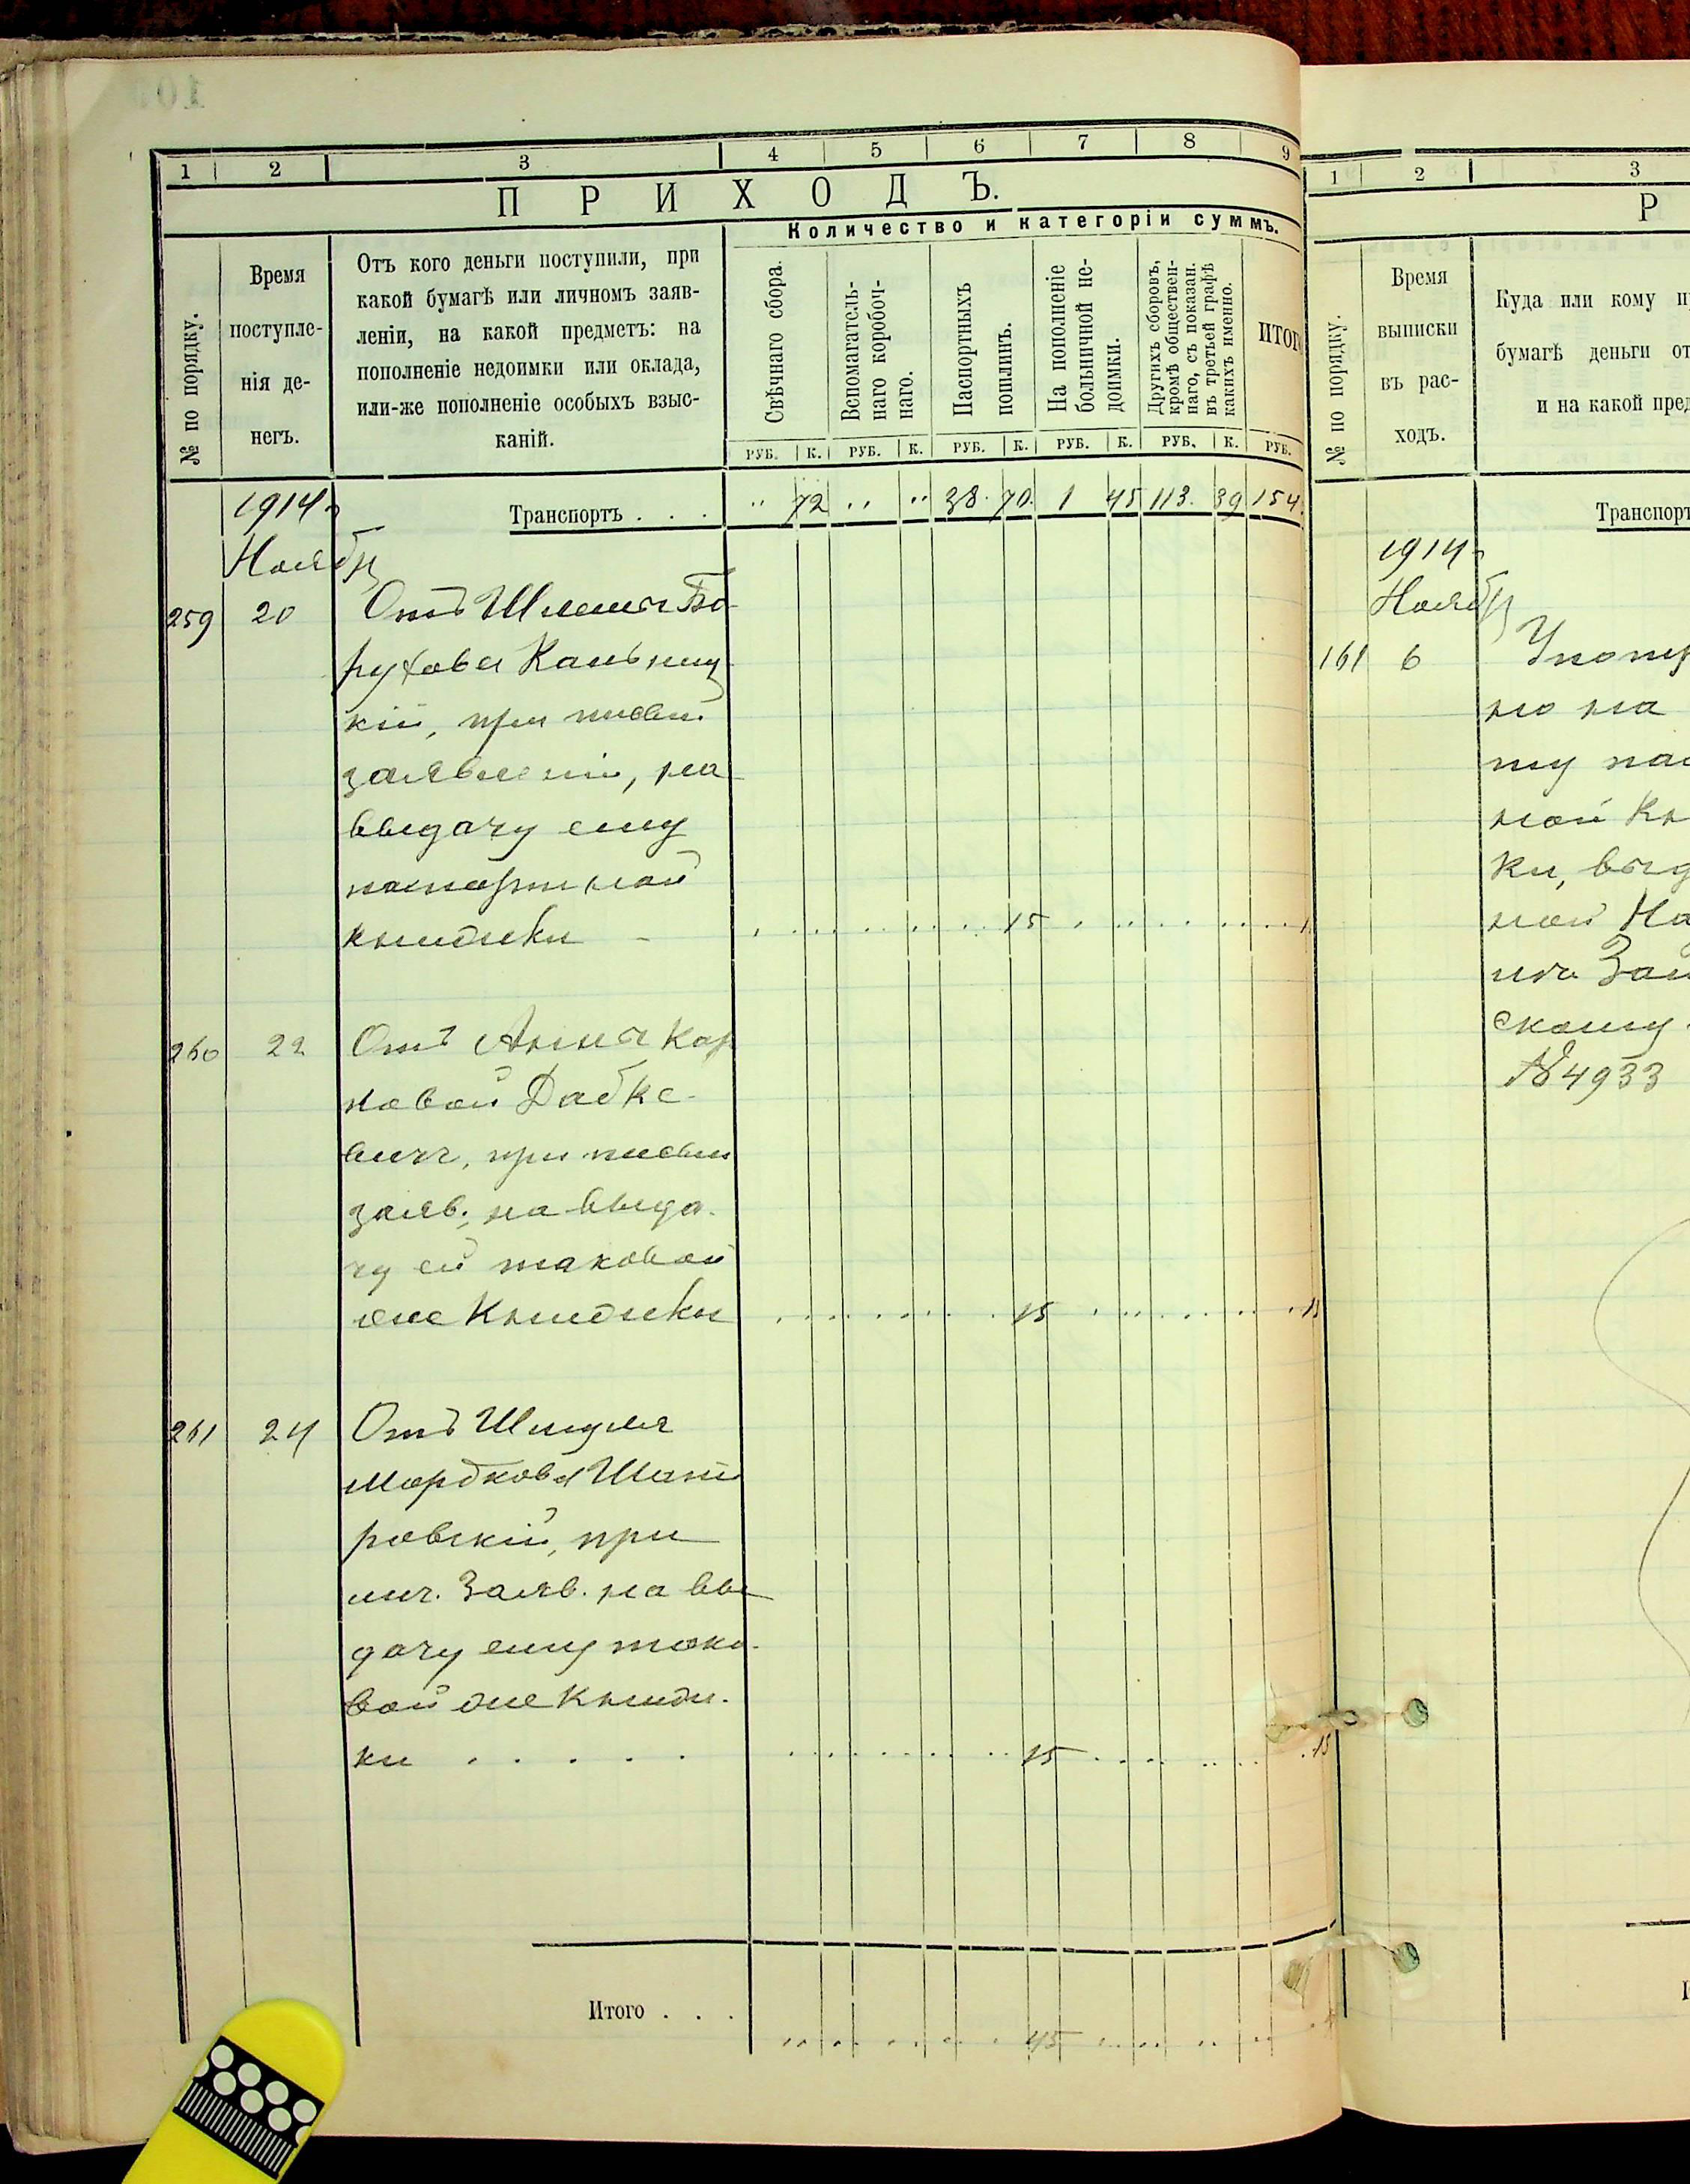 1 2 3 4 5 6 7 8 9
ПРИХОДЪ.
Количество и категоріи суммъ.
№ по порядку.
Время
поступле-
нія де-
негъ.
Отъ кого деньги поступили, при
какой бумагѣ или личномъ заяв-
леніи, на какой предметъ: на
пополненіе недоимки или оклада,
или-же пополненіе особыхъ взыс-
каній.
Свѣчнаго сбора.
Вспомагатель-
наго коробоч-
наго.
Паспортныхъ
поплинъ.
На пополненіе
больничной не-
доимки.
Другихъ сборовъ,
кромѣ обществен-
наго, съ показан.
въ третьей графѣ
какихъ именно.
ИТОГ
РУБ. К. РУБ. К. РУБ. К. РУБ. К. РУБ. К. РУБ.
1914 г
Транспортъ . . . " 72 " " 38. 70. 1 45 113. 39 154.
Ноябр
259 20 Отъ Шлемы Бо-
рухова Кальниц
кій, при письм.
заявленіи, на
выдачу ему
паспортной
книжки - 15
260 22 Отъ Анны Кар
повой Дабке-
вичъ, при письм
заяв., на выда-
чу ей таковой
же книжки 15 15
261 24 Отъ Шмуля
Мордковъ Шати
ровскій, при
лич. заяв. на вы
дачу ему тако-
вой же книж-
ки . . . . . 15 15
Итого . . . 45
1 2 3
Р
№ по порядку.
Время
выписки
въ рас-
ходъ.
Куда или кому п
бумагѣ деньги от
и на какой пред
Транспорт
1914 г
Ноябр
161 6 Употр
но на
ту пас
ной Кн
ки, выд
ной На
Зай
скому
№ 4933